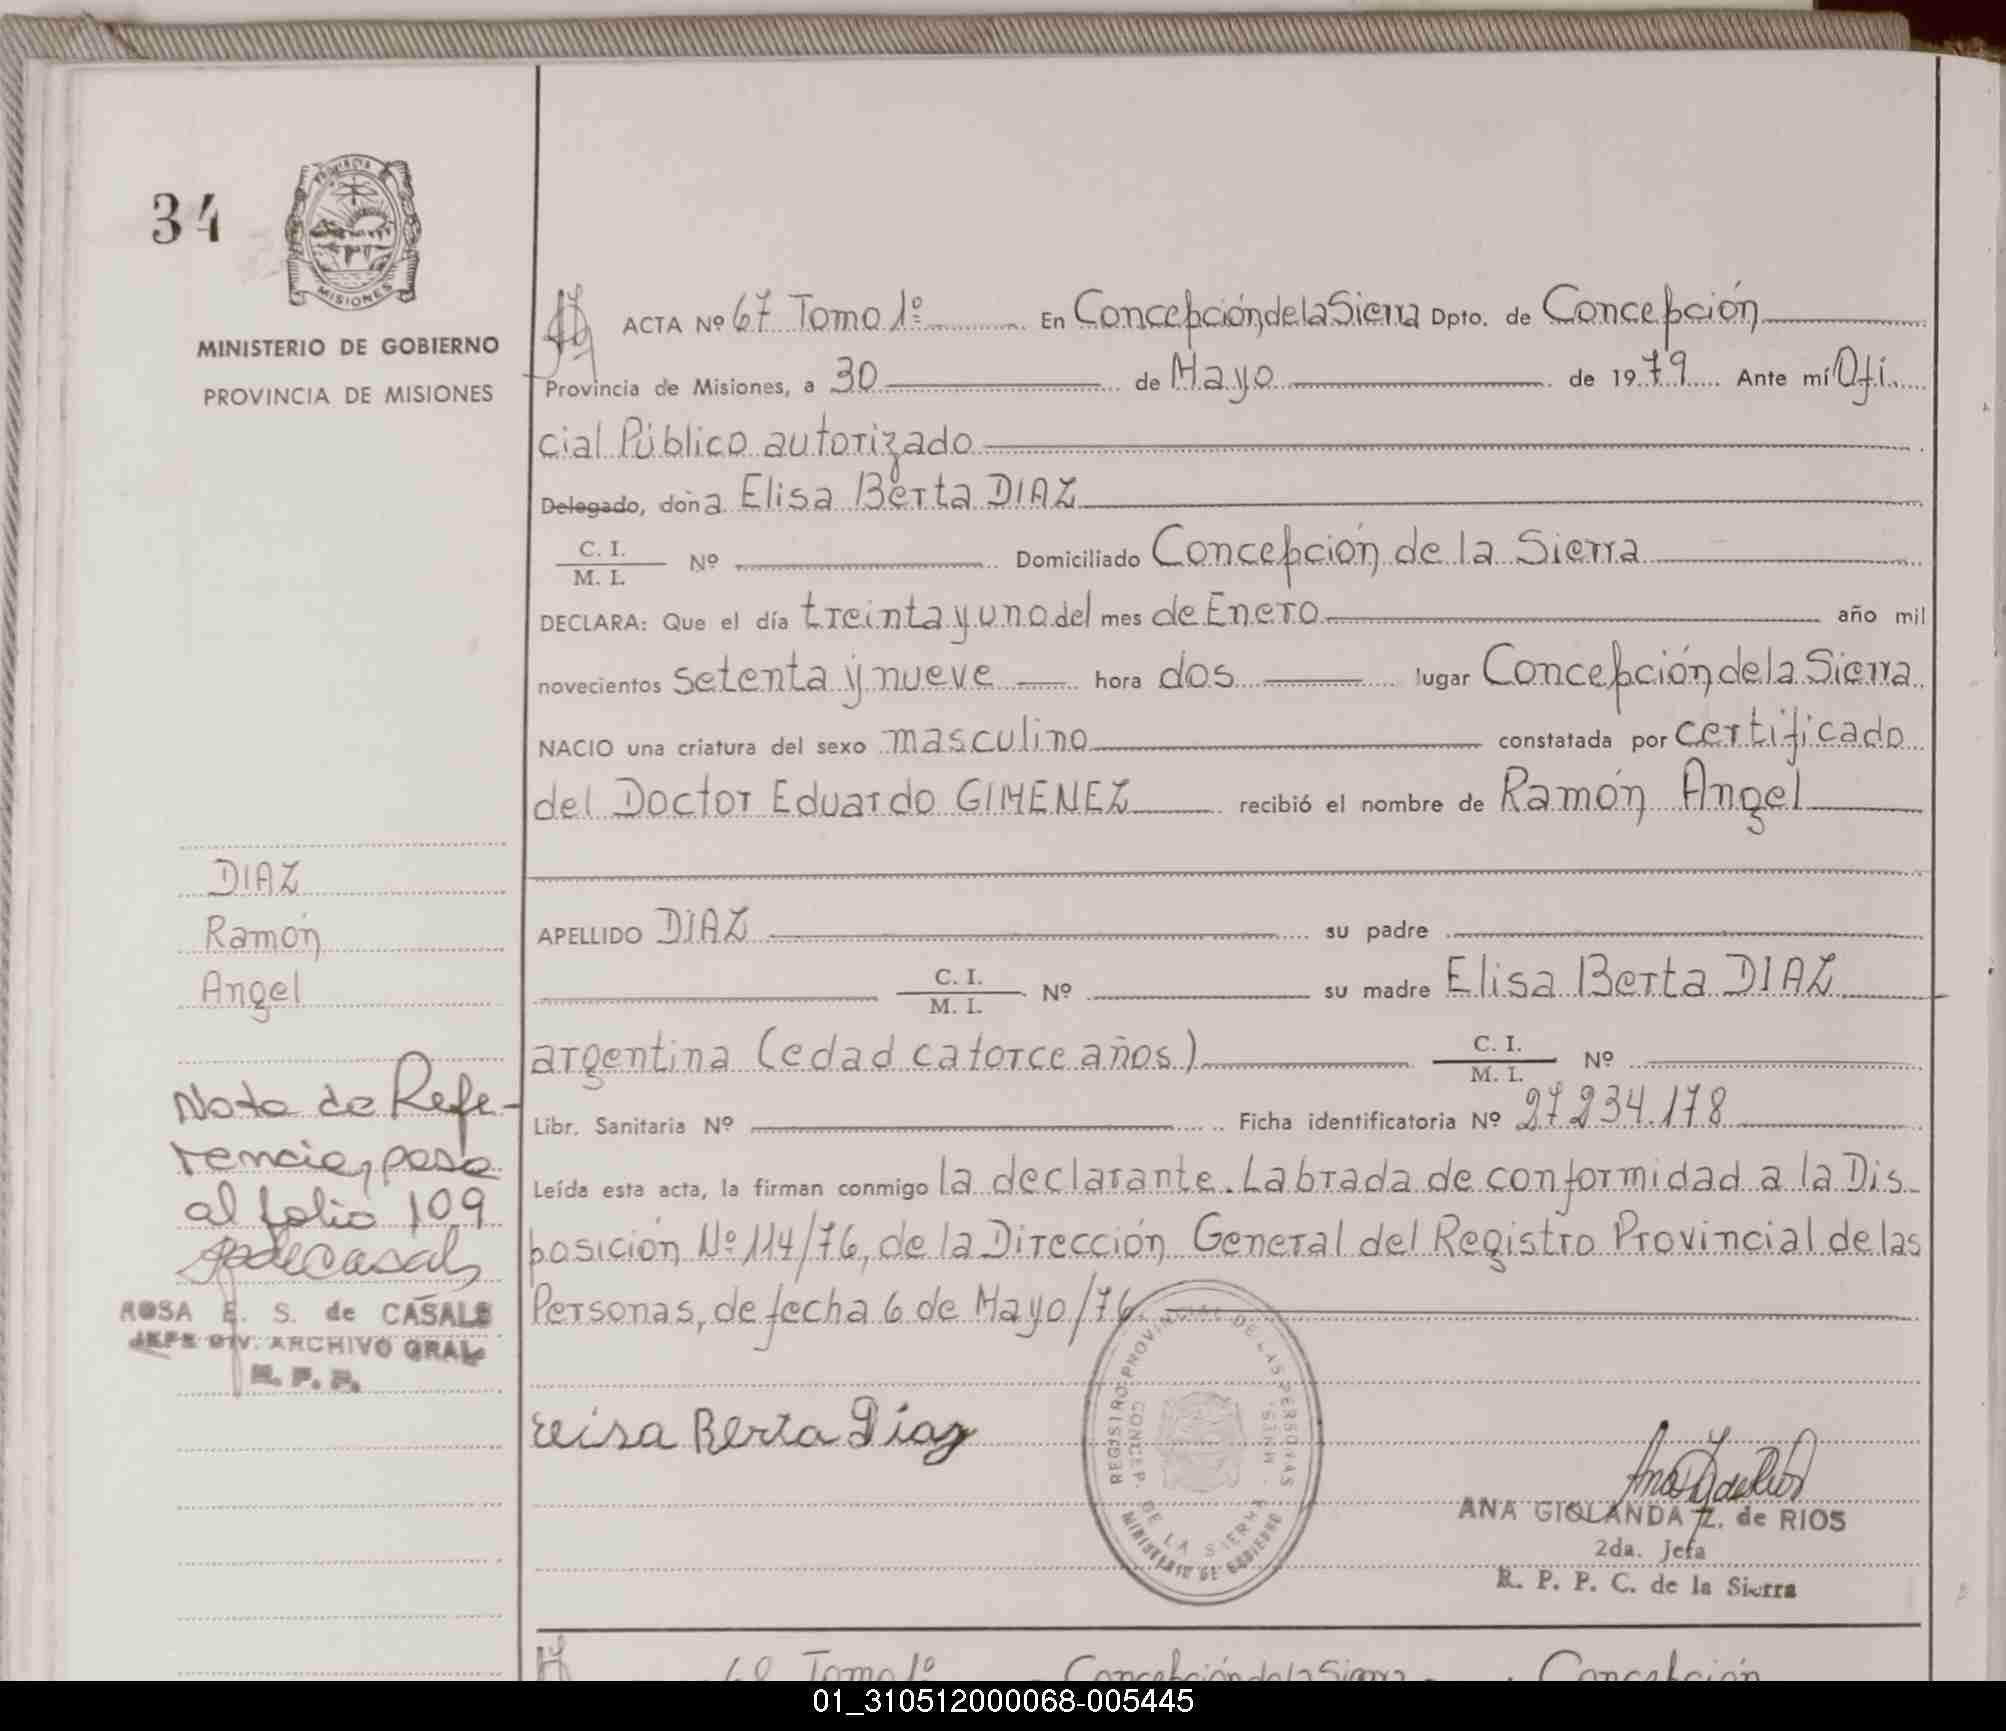 34
PROVINCIA
MISIONES
MINISTERIO DE GOBIERNO
PROVINCIA DE MISIONES
ACTA Nº 67 Tomo 1º En Concepción de la Sierra Dpto. de Concepción
Provincia de Misiones, a 30 de Mayo de 1979 Ante mí Ofi
cial Público autorizado
Delegado, doña Elisa Berta DIAZ
C. I.
M. I. Nº Domiciliado Concepción de la Sierra
DECLARA: Que el día treinta y uno del mes de Enero año mil
novecientos setenta y nueve hora dos lugar Concepción de la Sierra
NACIO una criatura del sexo masculino constatada por certificado
del Doctor Eduardo GIMENEZ recibió el nombre de Ramón Angel
APELLIDO DIAZ su padre
C. I.
M. I. Nº su madre Elisa Berta DIAZ
argentina (edad catorce años) C. I.
M. I. Nº
Libr. Sanitaria Nº Ficha identificatoria Nº 27.234.178
Leída esta acta, la firman conmigo la declarante. Labrada de conformidad a la Dis-
posición Nº 114/76, de la Dirección General del Registro Provincial de las
Personas, de fecha 6 de Mayo/76.
Elisa Berta Díaz
REGISTRO PROVINCIAL DE LAS PERSONAS
CONCEP. DE LA SIERRA
MNES.
MINISTERIO DE GOBIERNO
ANA GIOLANDA Z. de RIOS
2da. Jefa
R. P. P. C. de la Sierra
DIAZ
Ramón
Angel
Nota de Refe-
rencia, pasa
al folio 109
ROSA E. S. de CASALS
JEFE DIV. ARCHIVO GRAL
R. P. P.
68 Tomo 1º Concepción de la Sierra Concepción
01_310512000068-005445